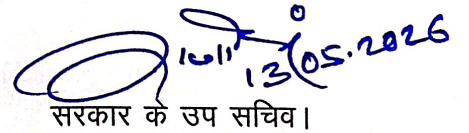 13/05.2026
सरकार के उप सचिव।